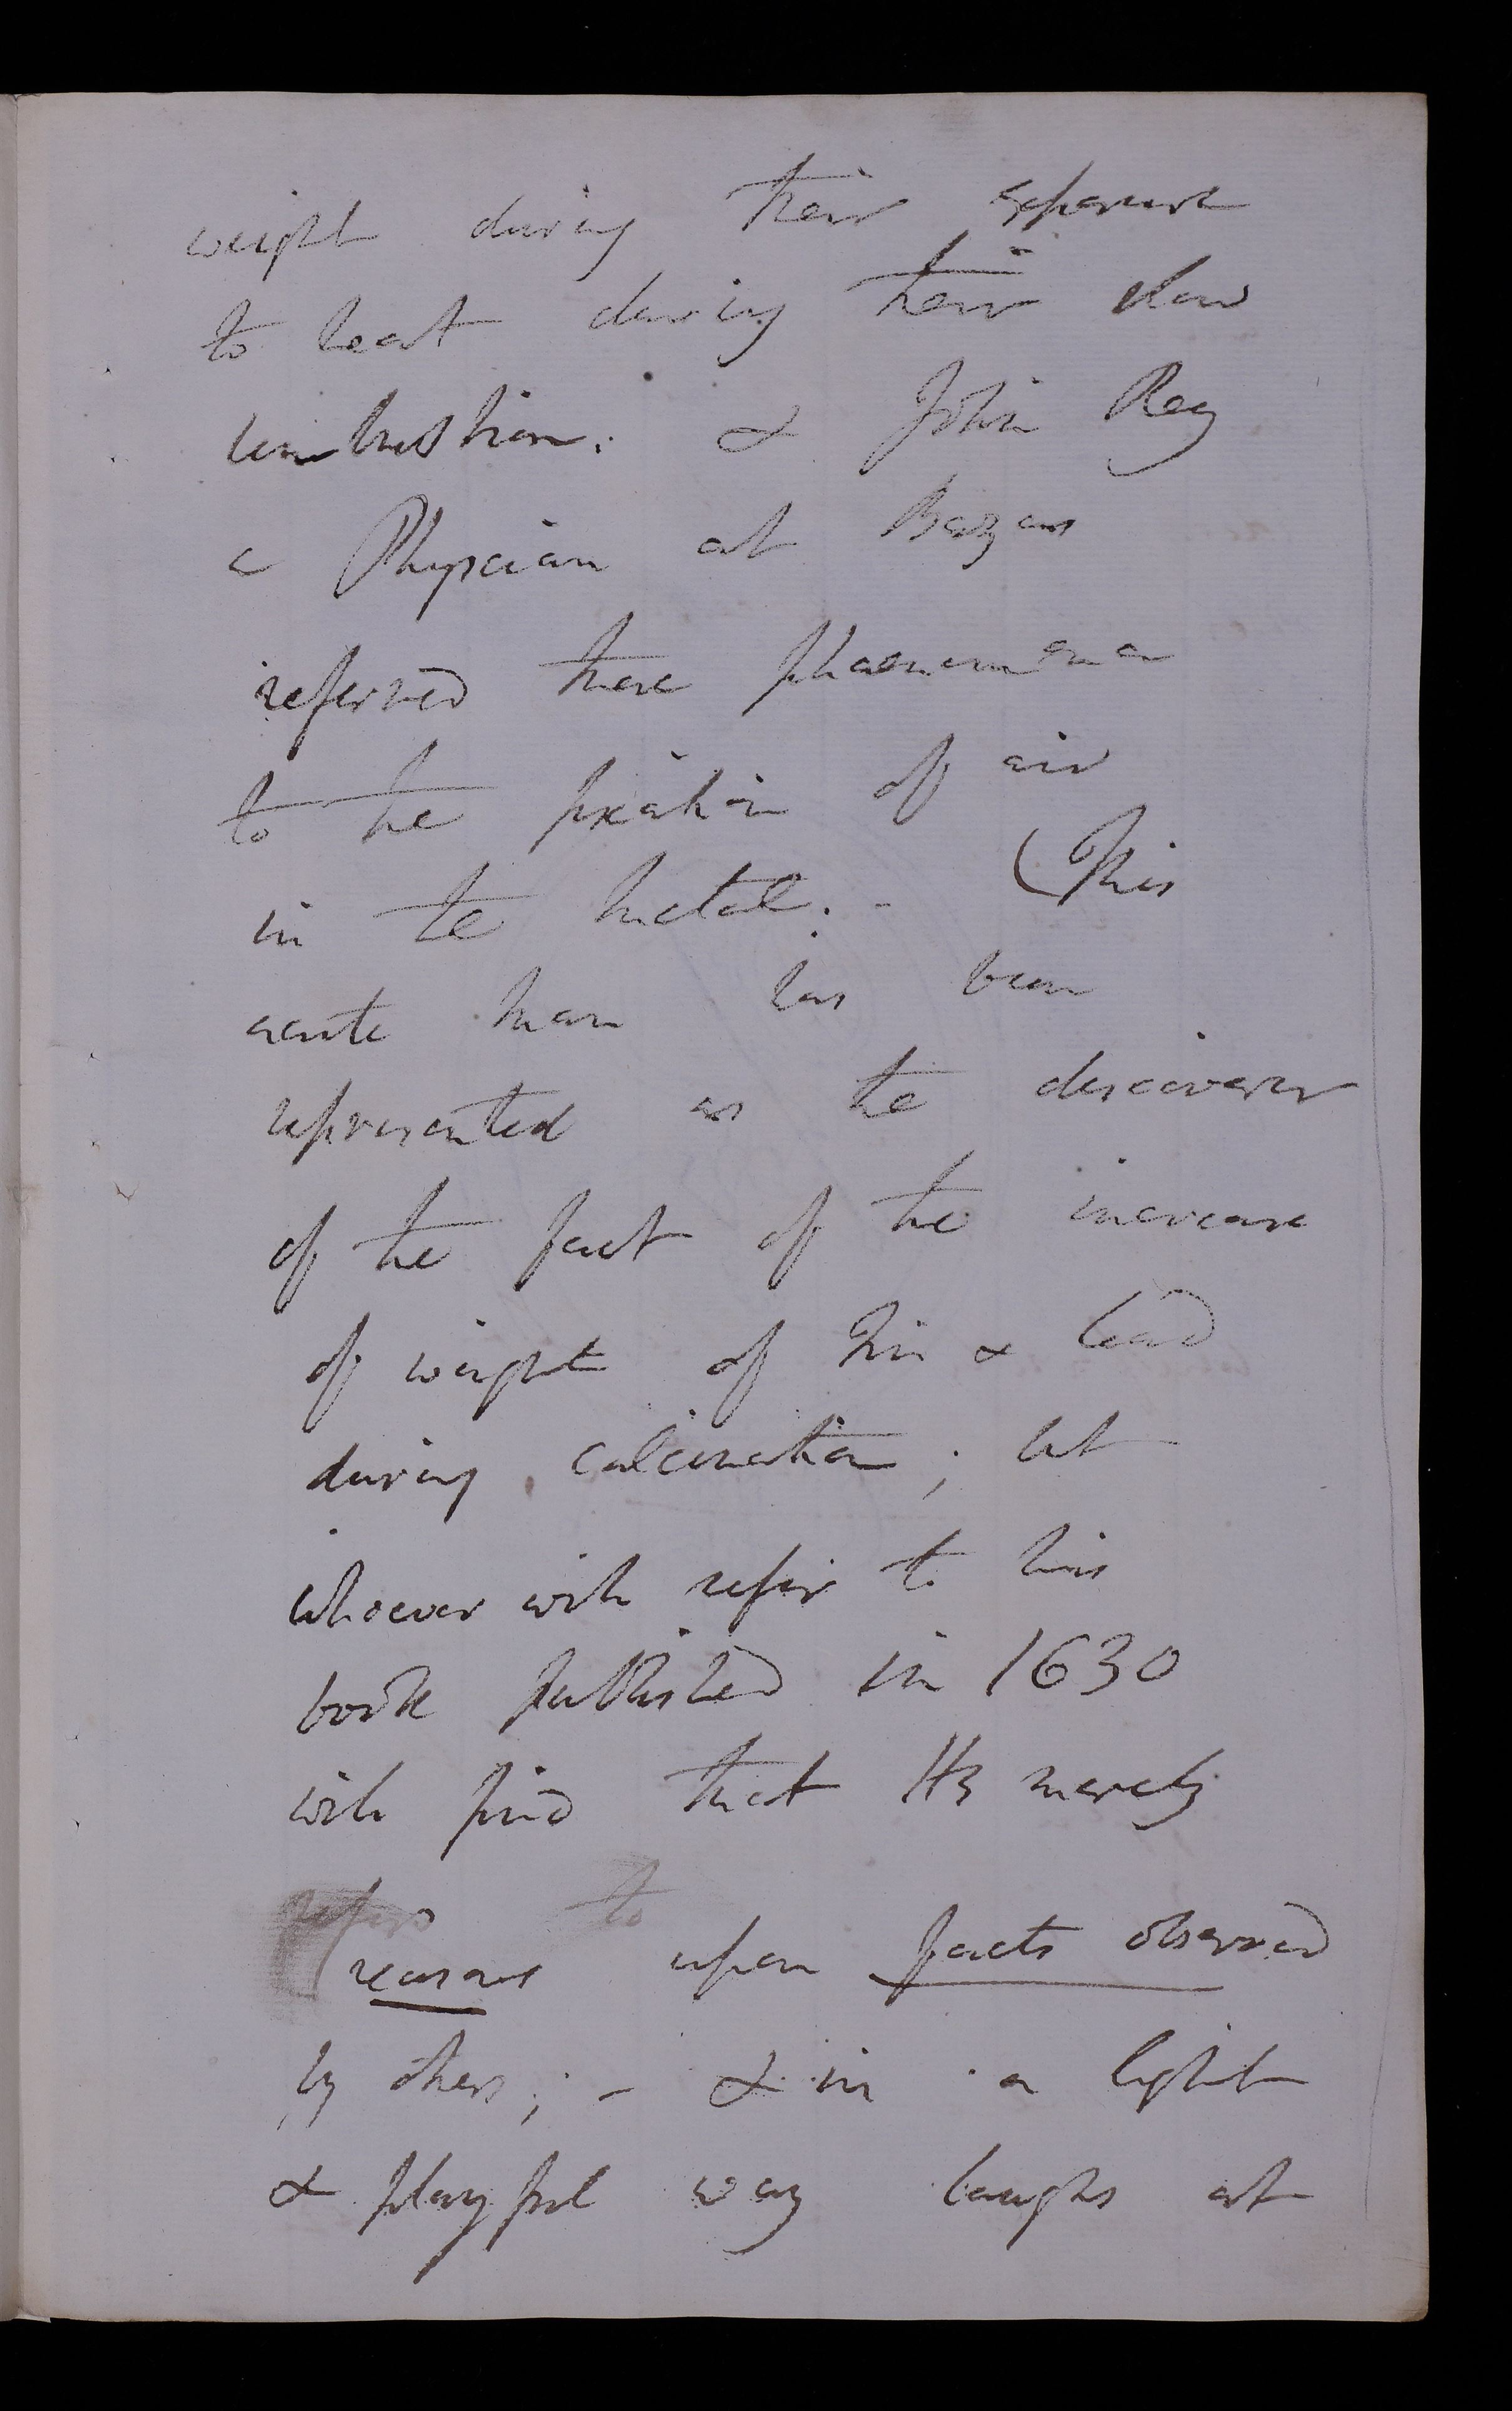 weight during their exposure
to heat during their slow
combustion. & John Rey
a Physician at Bazas
referred these phaenomena
to the fixation of air
in the metal. - (This
acute man has been
represented as the discoverer
of the fact of the increase
of weight of tin & lead
during calcination; but
whoever will refer to his
book published in 1630
will find that He merely
refers to
reasons upon facts observed
by others; - & in a light
& playful way laughs at